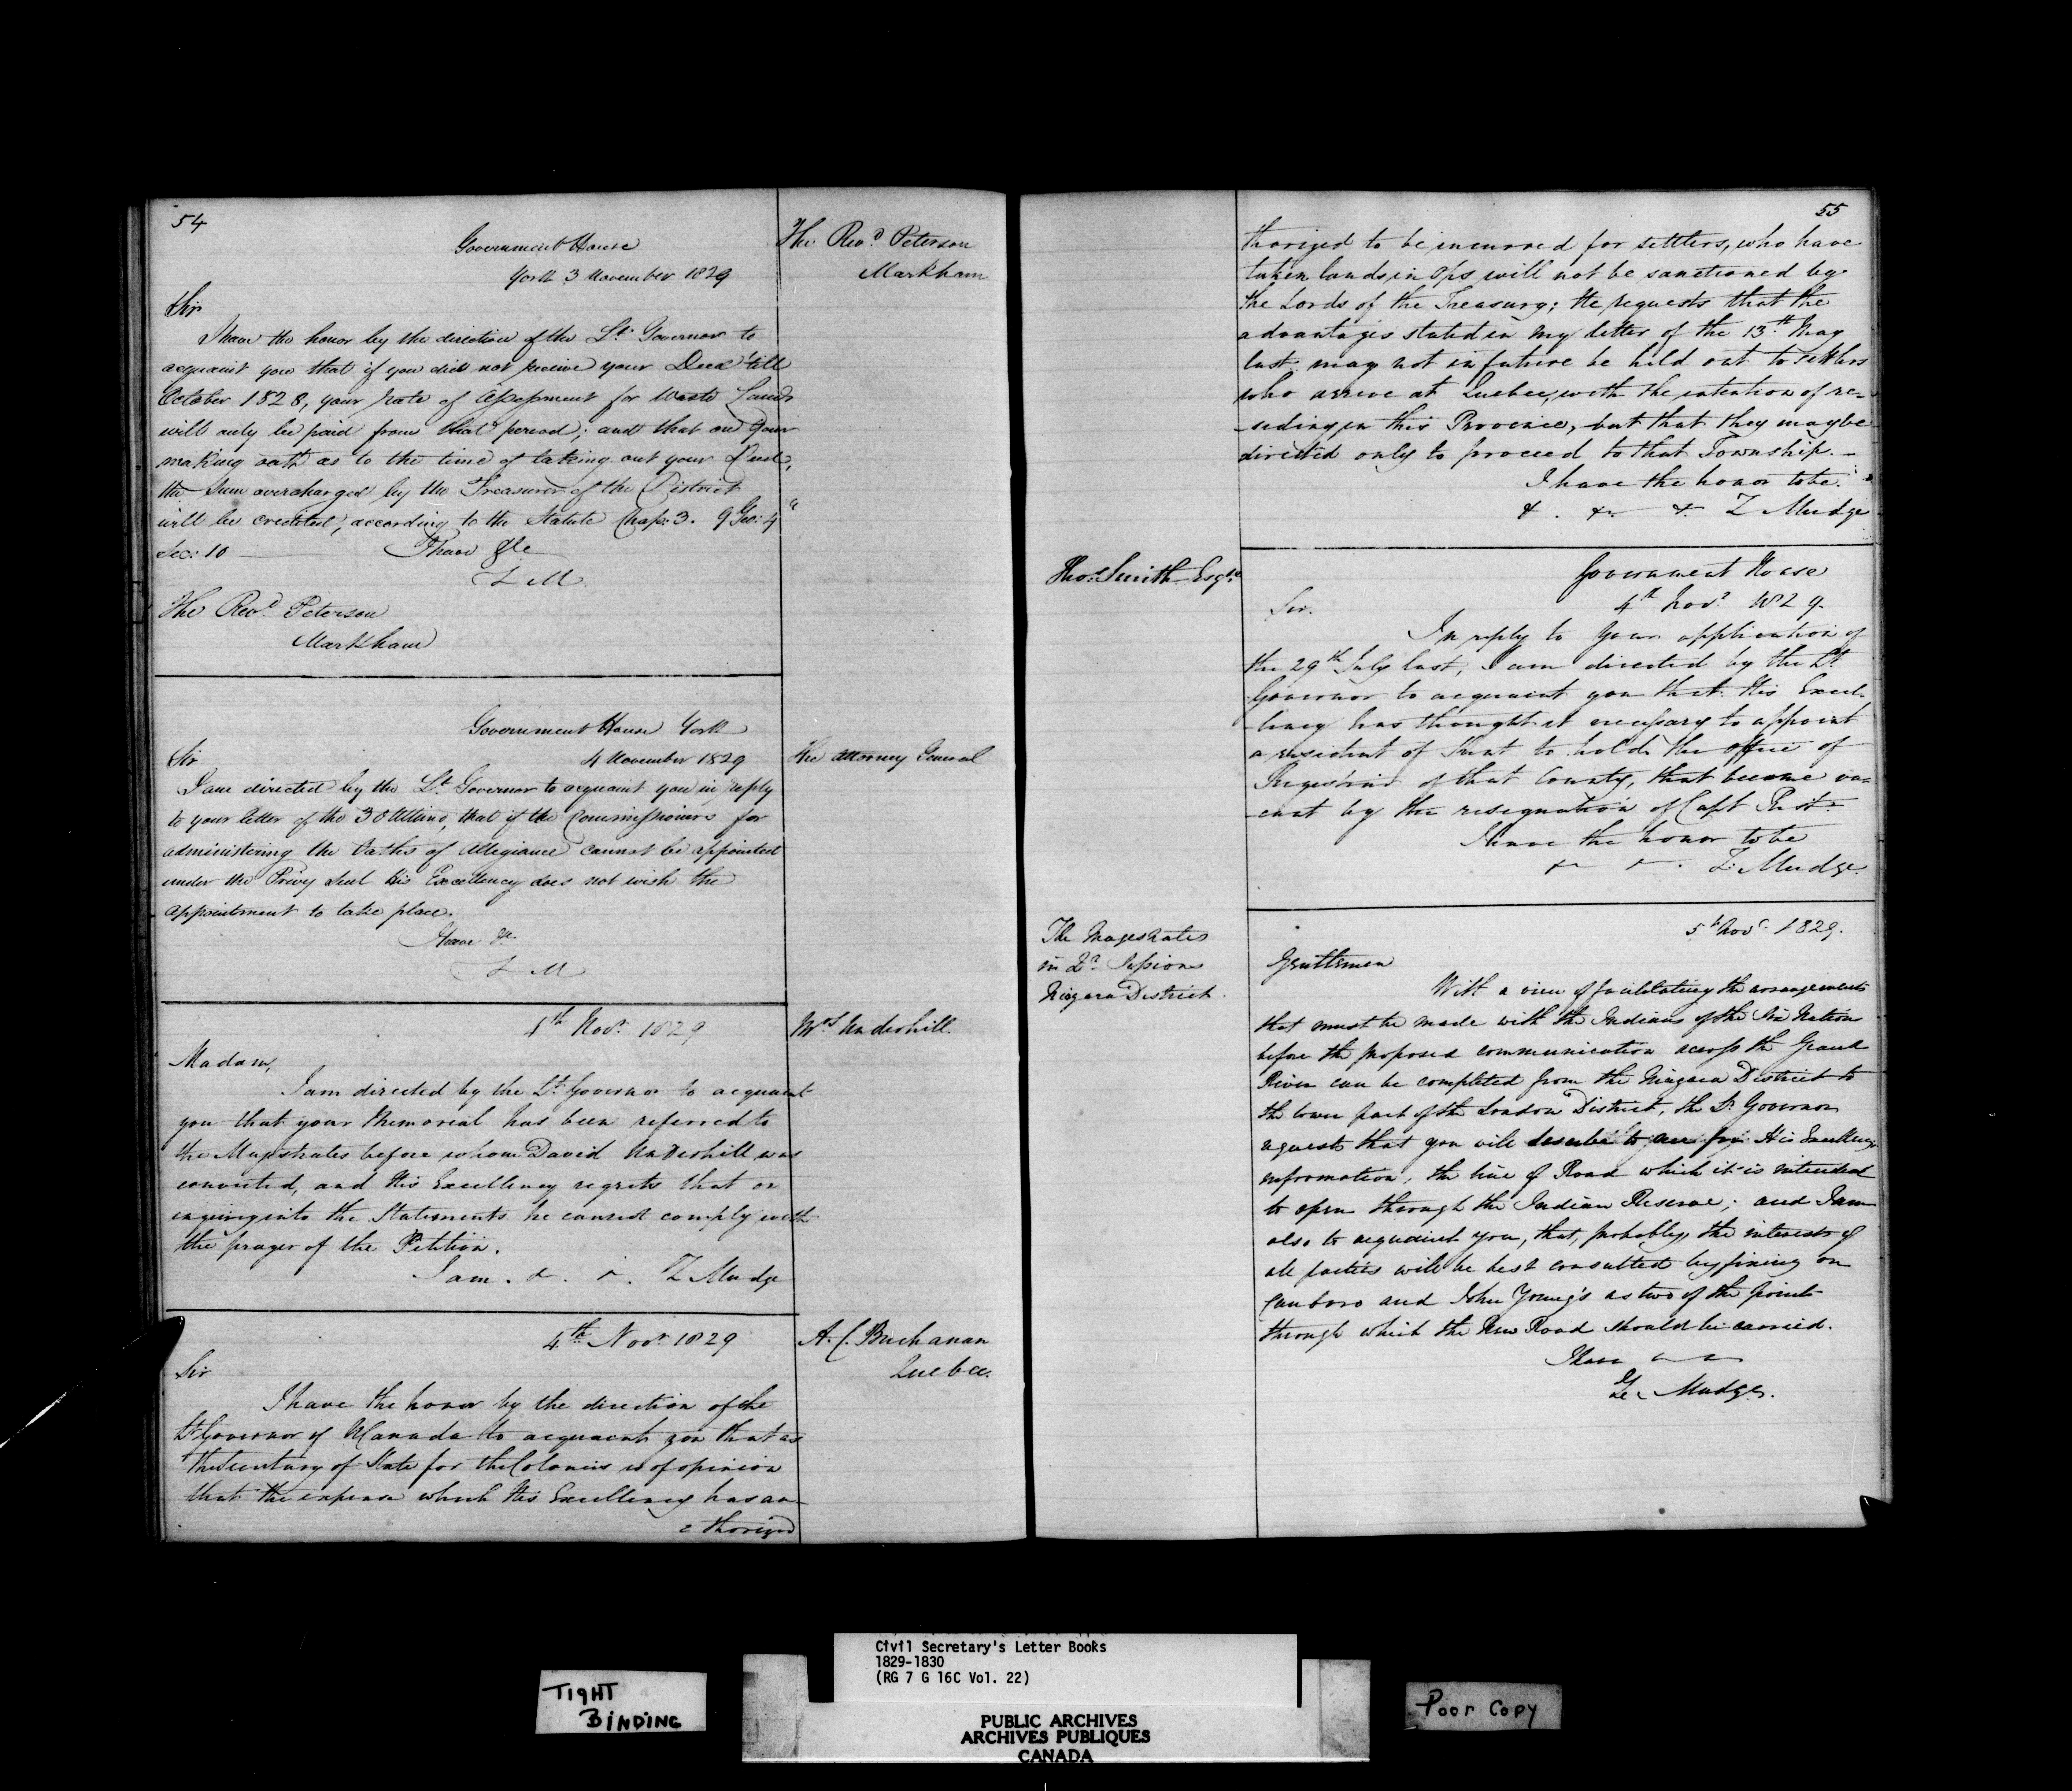 54
Government House
York 3 November 1829
The Revd. Peterson
Markham
Sir
I have the honor by the direction of the Lt. Governor to
acquaint you that if you did not receive your Deed 'till
October 1828, your rate of Assessment for Waste Lands
will only be paid from that period; and that on your
making oath as to the time of taking out your Deed,
the sum overcharged by the Treasurer of the District
will be credited, according to the Statute Chap: 3. 9 Geo: 4
Sec: 10 I have &c
Z M
The Revd. Peterson
Markham
Government House York
4 November 1829
The Attorney General
Sir
I am directed by the Lt. Governor to acquaint you in reply
to your letter of the 30 Ultimo, that if the Commissioners for
administering the Oaths of Allegiance cannot be appointed
under the Privy Seal His Excellency does not wish the
appointment to take place.
I have &c.
Z M
4th Novr. 1829
Mrs Underhill.
Madam,
I am directed by the Lt. Governor to acquaint
you that your Memorial has been referred to
the Magistrates before whom David Underhill was
convicted, and His Excellency regrets that on
enquiring into the Statements he cannot comply with
the prayer of the Petition.
I am. &. &. Z Mudge
4th Novr. 1829
A. C. Buchanan
Quebec.
Sir
I have the honor by the direction of the
Lt Governor of U Canada to acquaint you that as
the Secretary of State for the Colonies is of opinion
that the expense which His Excellency has au-
-thorized
55
thorized to be incurred for settlers, who have
taken lands in Ops will not be sanctioned by
the Lords of the Treasury; He requests that the
advantages stated in my letter of the 13th. May
last may not in future be held out to settlers
who arrive at Quebec, with the intention of re-
-siding in this Province, but that they may be
directed only to proceed to that Township. -
I have the honor to be.
&. &. &. Z Mudge
Thos. Smith Esqre.
Government House
4th Novr. 1829.
Sir.
In reply to your application of
the 29th July last, I am directed by the Lt.
Governor to acquaint you that His Excel-
-lency has thought it necessary to appoint
a resident of Kent to hold the office of
Register of that County, that became va-
-cant by the resignation of Capt
I have the honor to be
& &. Z. Mudge.
The Magistrates
in Qr. Sessions
Niagara District.
5th Novr. 1829.
Gentlemen
With a view of facilitating the arrangements
that must be made with the Indians of the Six Nation
before the proposed communication across the Grand
River can be completed from the Niagara District to
the lower part of the London District, the Lt. Governor
requests that you will describe to me for His Excellency's
information, the line of Road which it is intended
to open through the Indian Reserve; and I am
also to acquaint you, that, probably, the interests of
all parties will be best consulted by fixing on
Canboro and John Young's as two of the points
through which the New Road should be carried.
I have & &
Z. Mudge.
TIGHT
BINDING
Civil Secretary's Letter Books
1829-1830
(RG 7 G 16C Vol. 22)
PUBLIC ARCHIVES
ARCHIVES PUBLIQUES
CANADA
Poor Copy